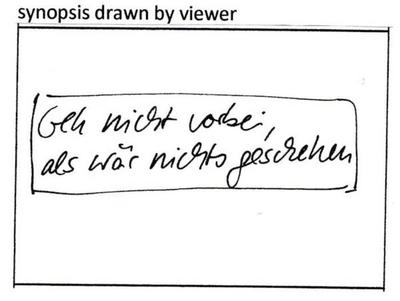 synopsis drawn by viewer
Geh nicht vorbei,
als wär nichts geschehen